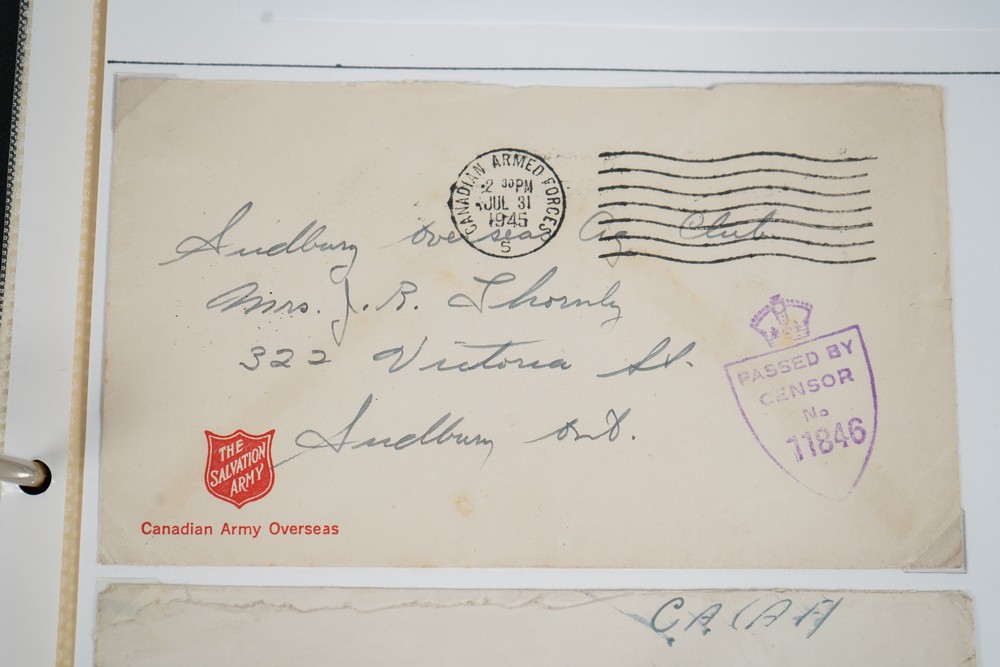 CANADIAN ARMED FORCES
2 30 PM
JUL 31
1945
5
Sudbury Overseas Cig Club
Mrs. J. R. Thornby
322 Victoria St.
Sudbury Ont.
PASSED BY
CENSOR
No
11846
THE
SALVATION
ARMY
Canadian Army Overseas